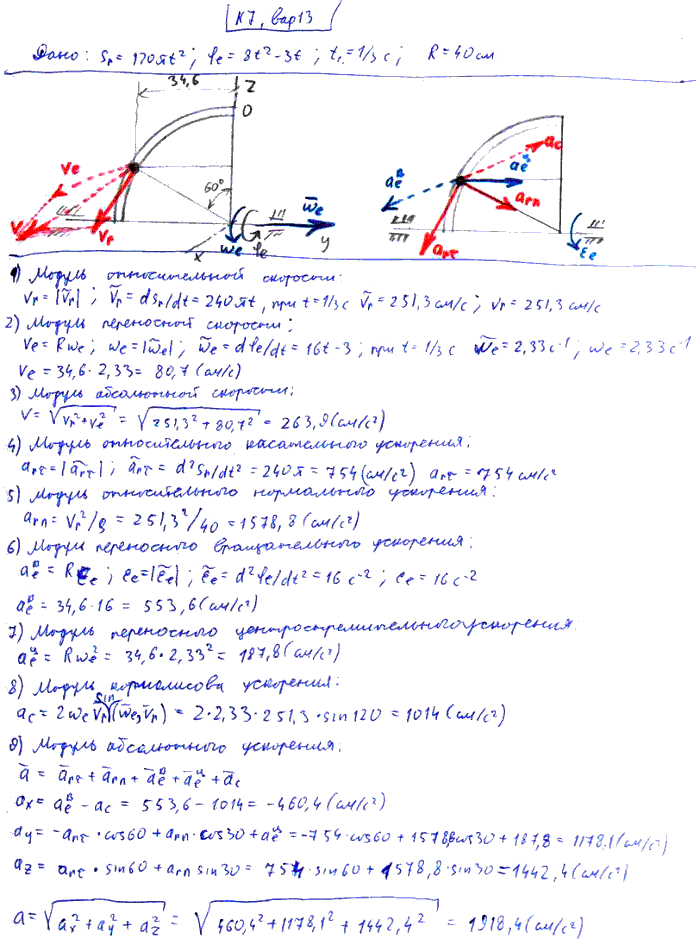 К7, вар13
Дано: Sr = 120πt²; φe = 8t² - 3t; t₁ = 1/3 c; R = 40 см
34,6
Z
O
60°
ve
v
vr
x
ω̄e
ωe
φe
y
ac
aeᵇ
aeᶜ
arn
arτ
εe
1) Модуль относительной скорости:
vr = |ṽr|; ṽr = dSr/dt = 240πt, при t = 1/3 c ṽr = 251,3 см/с; vr = 251,3 см/с
2) Модуль переносной скорости;
ve = Rωe; ωe = |ω̃e|; ω̃e = dφe/dt = 16t - 3; при t = 1/3 c ω̃e = 2,33 c⁻¹; ωe = 2,33 c⁻¹
ve = 34,6 · 2,33 = 80,7 (см/с)
3) Модуль абсолютной скорости;
v = √(vr² + ve²) = √(251,3² + 80,7²) = 263,9 (см/с²)
4) Модуль относительного касательного ускорения;
arτ = |ãrτ|; ãrτ = d²Sr/dt² = 240π = 754 (см/с²) arτ = 754 см/с²
5) Модуль относительного нормального ускорения:
arn = vr²/ρ = 251,3²/40 = 1578,8 (см/с²)
6) Модуль переносного вращательного ускорения;
aeᵇ = Rεe; εe = |ε̃e|; ε̃e = d²φe/dt² = 16 c⁻²; εe = 16 c⁻²
aeᵇ = 34,6 · 16 = 553,6 (см/с²)
7) Модуль переносного центростремительного ускорения:
aeц = Rωe² = 34,6 · 2,33² = 187,8 (см/с²)
8) Модуль кориолисова ускорения:
ac = 2ωe vr sin(ω̄e, v̄r) = 2 · 2,33 · 251,3 · sin120 = 1014 (см/с²)
9) Модуль абсолютного ускорения;
ā = ārτ + ārn + āeᵇ + āeц + āc
ax = aeᵇ - ac = 553,6 - 1014 = -460,4 (см/с²)
ay = -arτ · cos60 + arn · cos30 + aeц = -754 · cos60 + 1578,8cos30 + 187,8 = 1178,1 (см/с²)
az = arτ · sin60 + arn sin30 = 754 · sin60 + 1578,8 · sin30 = 1442,4 (см/с²)
a = √(ax² + ay² + az²) = √(460,4² + 1178,1² + 1442,4²) = 1918,4 (см/с²)